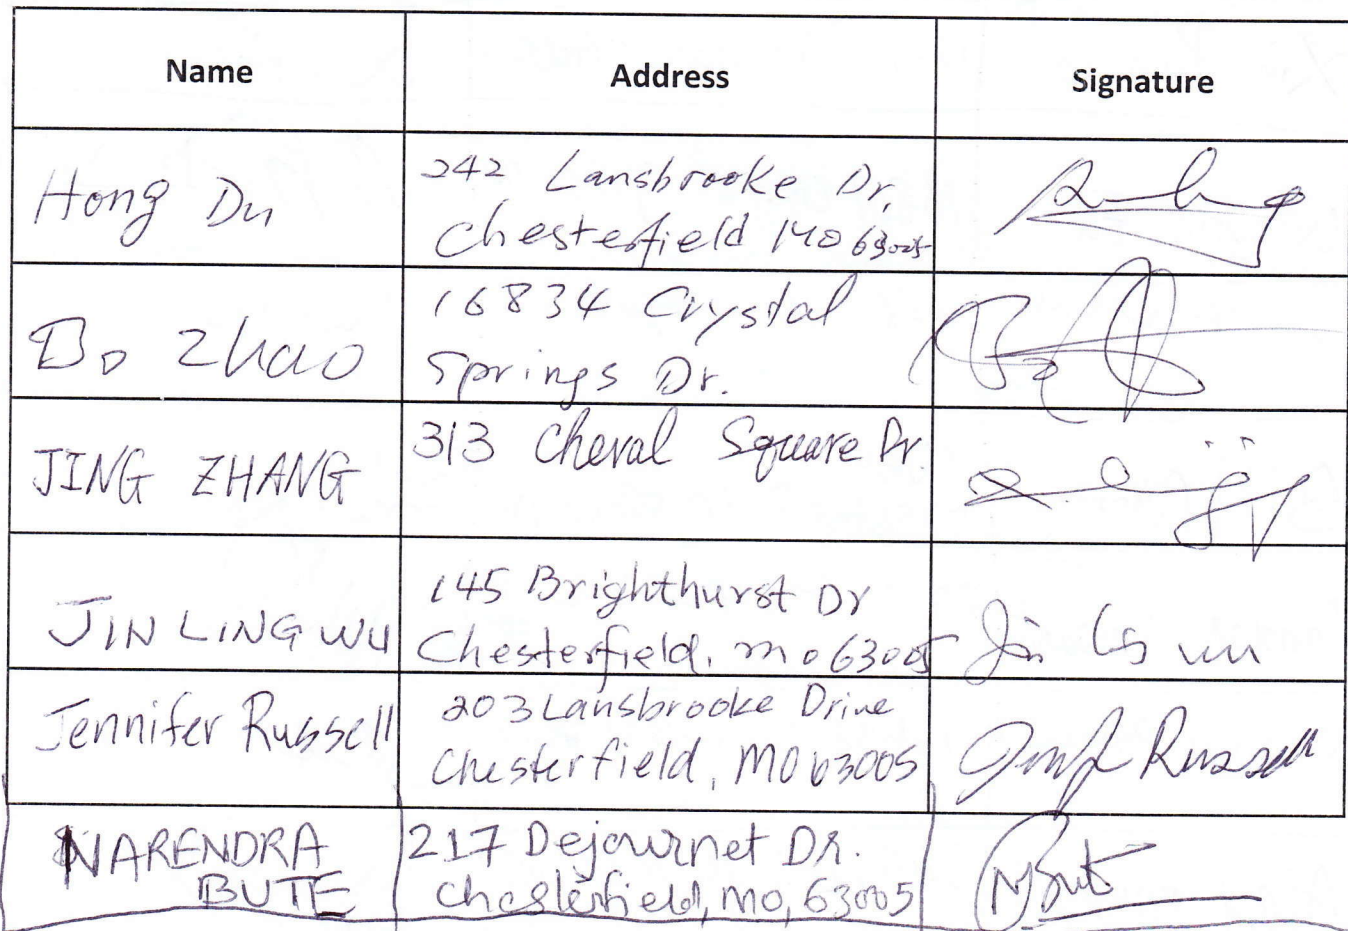 Name Address Signature
Hong Du
242 Lansbrooke Dr,
Chesterfield MO 63005
Bo Zhao
16834 Crystal
Springs Dr.
JING ZHANG
313 Cheval Square Dr
JIN LING WU
145 Brighthurst Dr
Chesterfield, mo 63005
Jennifer Russell
203 Lansbrooke Drive
Chesterfield, MO 63005
Russell
NARENDRA
BUTE
217 Dejournet DR.
Chesterfield, MO, 63005